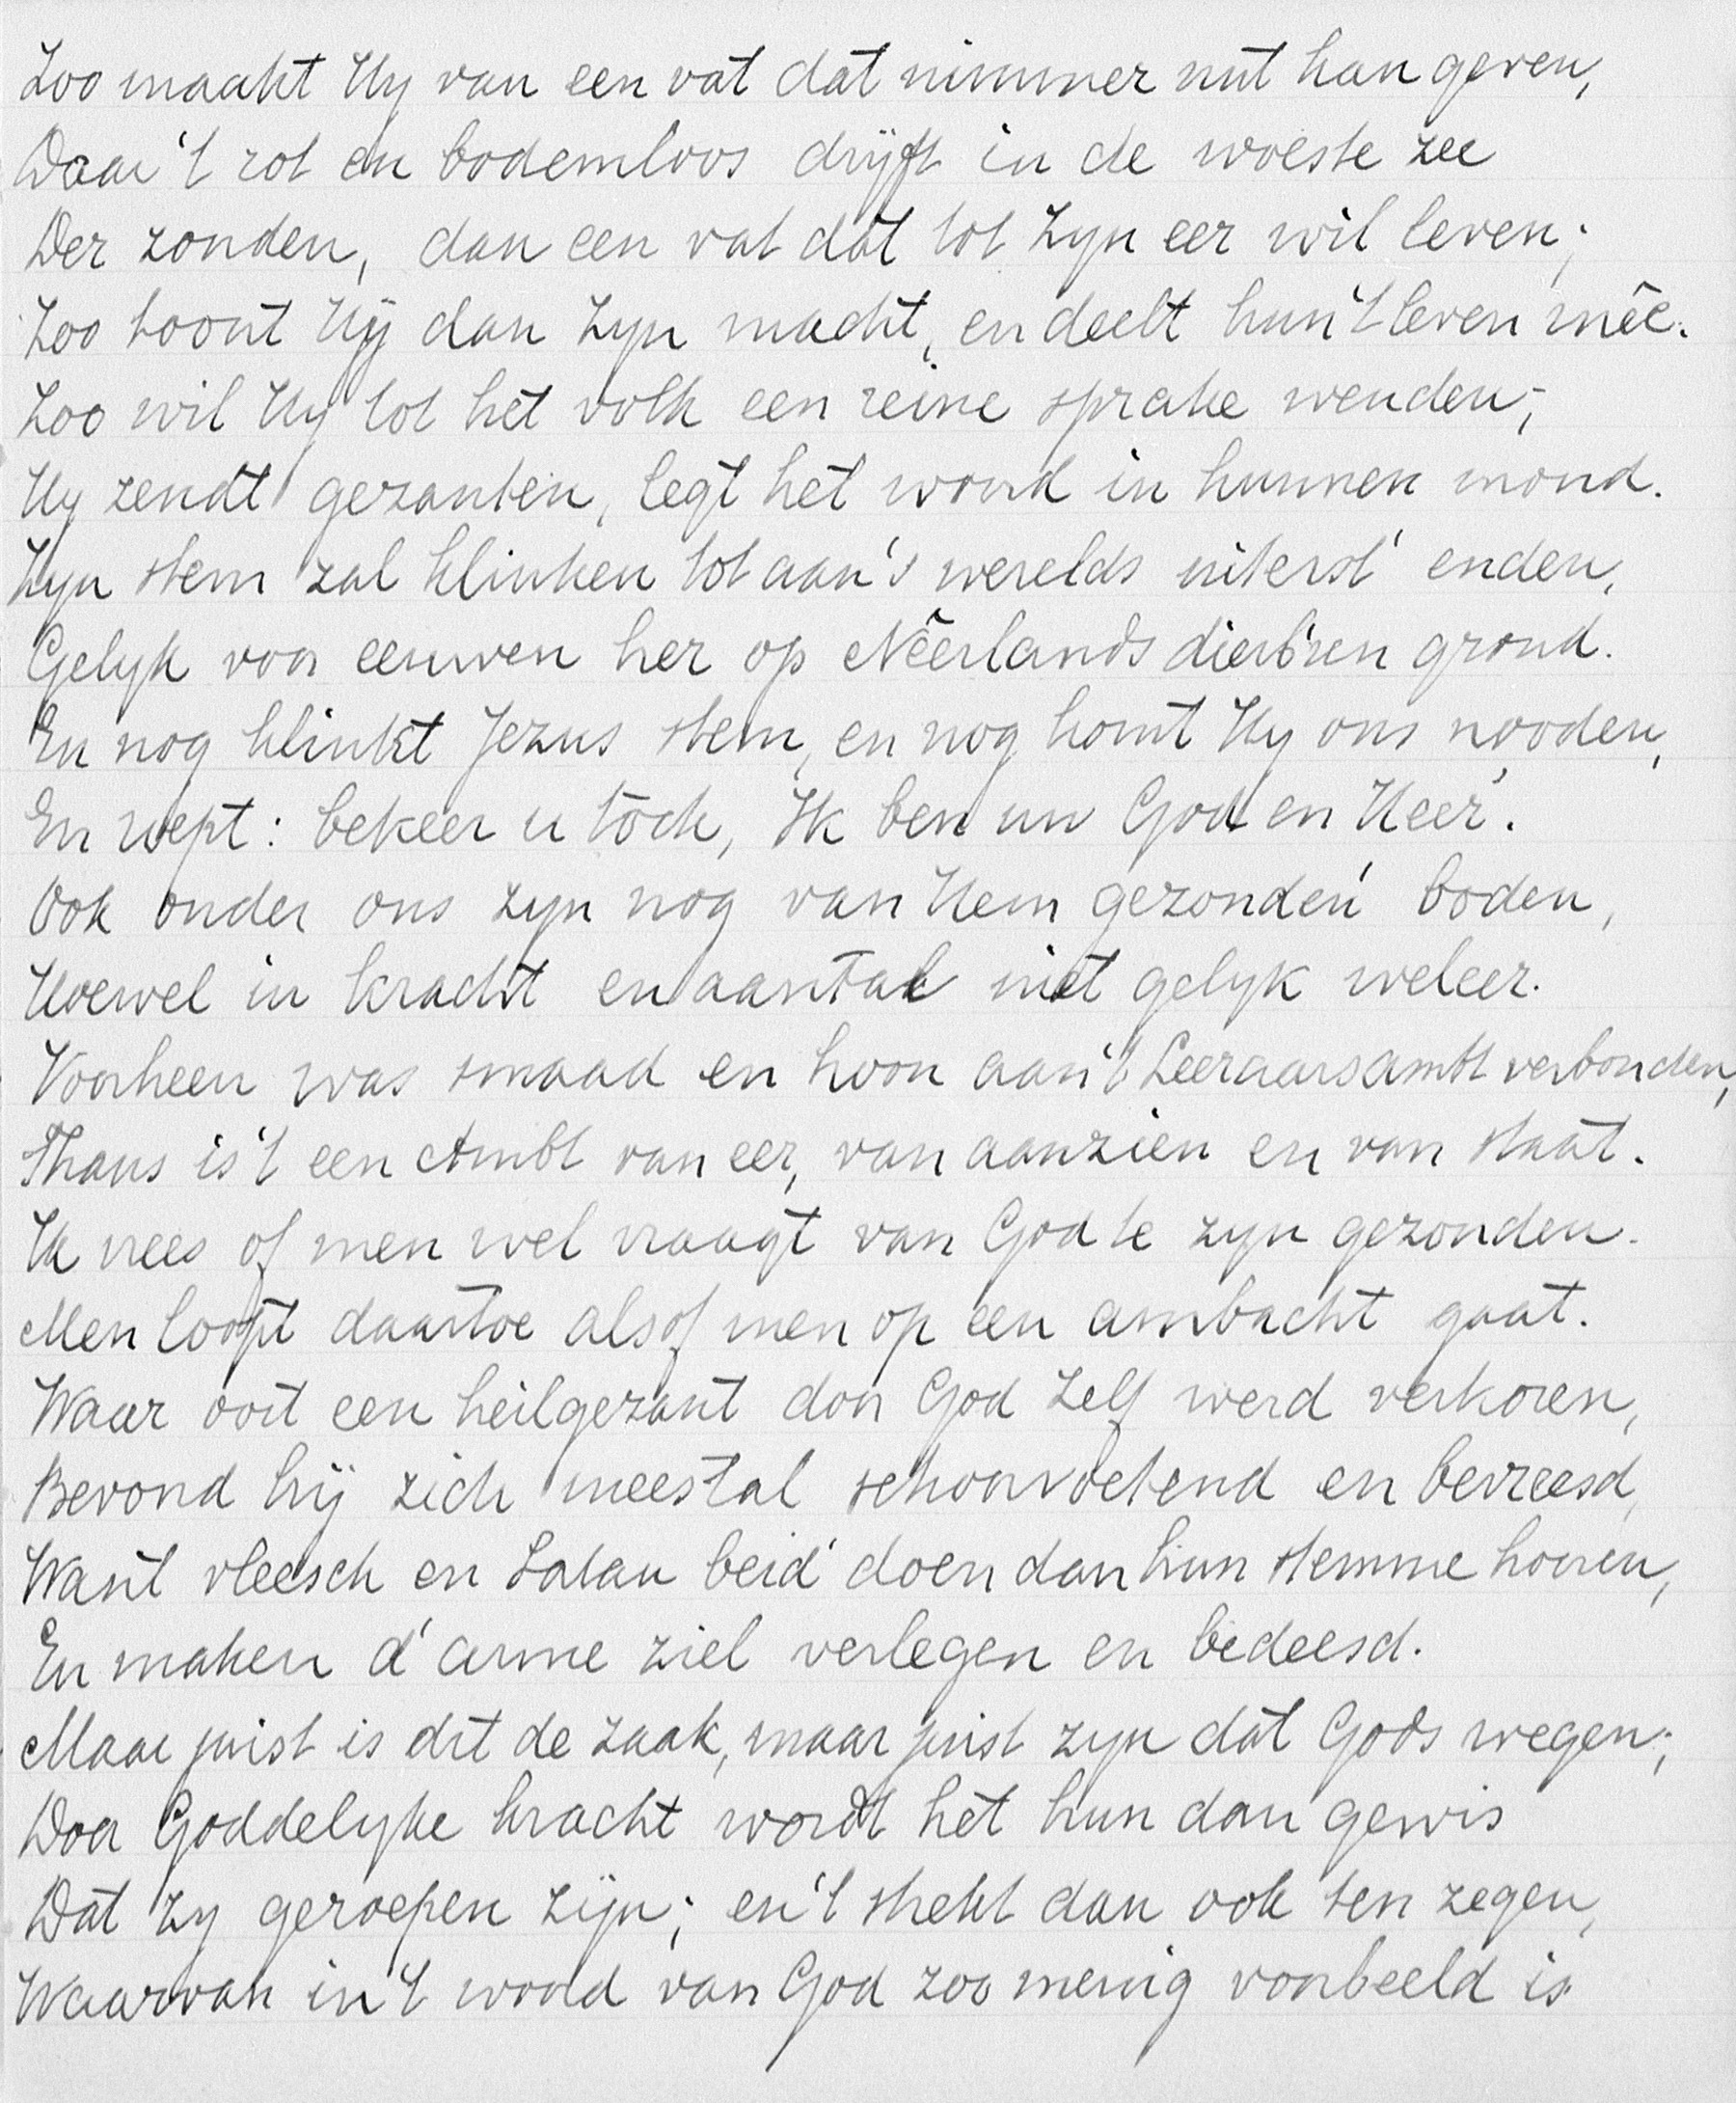 Zoo maakt Hy van een vat dat nimmer nut kan geven,
Daar 't rot en bodemloos drijft in de woeste zee
Der zonden, dan een vat dat tot Zyn eer wil leven;
Zoo toont Hij dan Zyn macht, en deelt hun 't leven mêe.
Zoo wil Hy tot het volk een reine sprake wenden;
Hy zendt gezanten, legt het woord in hunnen mond.
Zyn stem zal klinken tot aan 's werelds uiterst' enden,
Gelyk voor eeuwen her op Nêerlands dierb'ren grond.
En nog klinkt Jezus stem, en nog komt Hy ons nooden,
En roept: bekeer u tóch, Ik ben uw God en Heer'.
Ook onder ons zyn nog van Hem gezonden' boden,
Hoewel in kracht en aantal niet gelyk weleer.
Voorheen was smaad en hoon aan 't Leeraarsambt verbonden,
Thans is 't een Ambt van eer, van aanzien en van staat.
Ik vrees of men wel vraagt van God te zyn gezonden.
Men loopt daartoe alsof men op een ambacht gaat.
Waar ooit een heilgezant door God Zelf werd verkoren,
Bevond hij zich meestal schoorvoetend en bevreesd,
Want vleesch en Satan beid' doen dan hun stemme hooren,
En maken d' arme ziel verlegen en bedeesd.
Maar juist is dit de zaak, maar juist zyn dat Gods wegen;
Door Goddelyke kracht wordt het hun dan gewis
Dat zy geroepen zijn; en 't strekt dan ook ten zegen,
Waarvan in 't woord van God zoo menig voorbeeld is